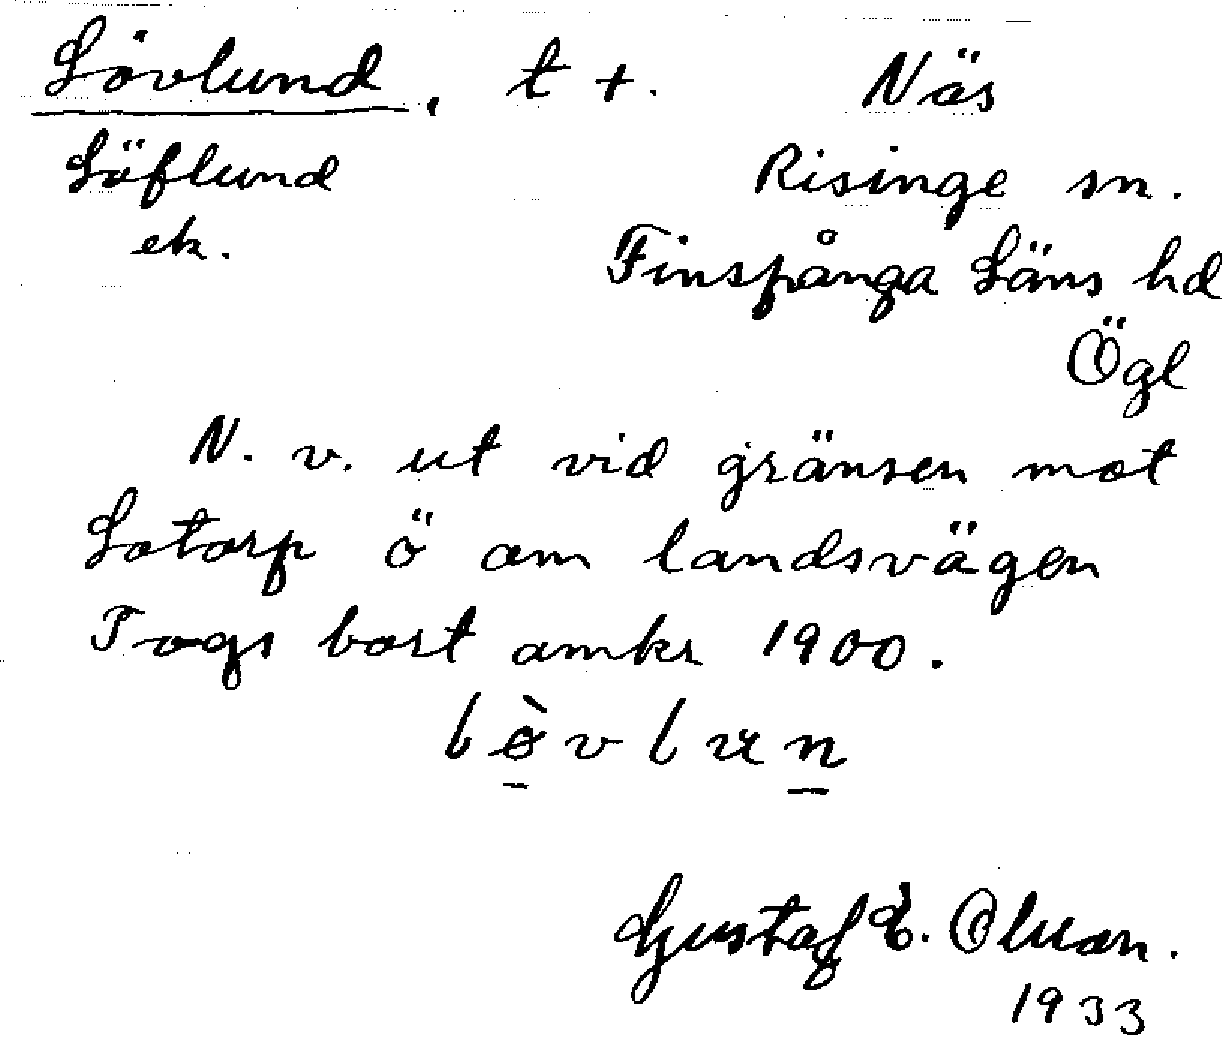 Lövlund, t +. Näs
Löflund Risinge sn.
ek. Finspånga Läns hd
Ögl
N. v. ut vid gränsen mot
Lotorp ö om landsvägen
Togs bort omkr 1900.
lòvlun
Gustaf E. Olsson.
1933